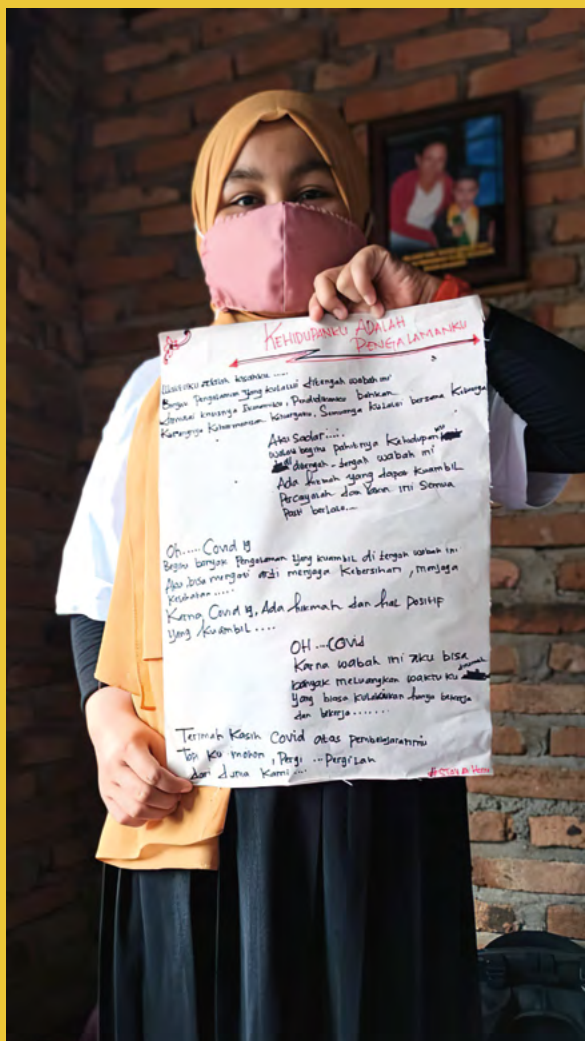 KEHIDUPANKU ADALAH
PENGALAMANKU
Begitu Pengalaman Yang kulalui ditengah wabah ini
krisisnya Ekonomiku, Pendidikanku bahkan
Kurangnya Keharmonisan Keluargaku, Semuanya kulalui bersama Keluarga
Aku Sadar.....
walau begitu pahitnya Kehidupan ku
ditengah - tengah wabah ini
Ada hikmah yang dapat kuambil
Percayalah dan Yakin ini Semua
Pasti berlalu....
Oh..... Covid 19
Begitu banyak Pengalaman Yang kuambil di tengah wabah ini
Aku bisa mengerti arti menjaga Kebersihan, menjaga
Kesehatan .....
Karna Covid 19, Ada hikmah dan hal Positif
Yang kuambil ....
OH ...COVID
Karna wabah ini Aku bisa
banyak meluangkan waktu ku dirumah
Yang biasa kulakukan hanya bekerja
dan bekerja.......
Terimah Kasih Covid atas pembelajaranmu
Tapi Ku mohon, Pergi ... Pergilah
dari dunia Kami ...